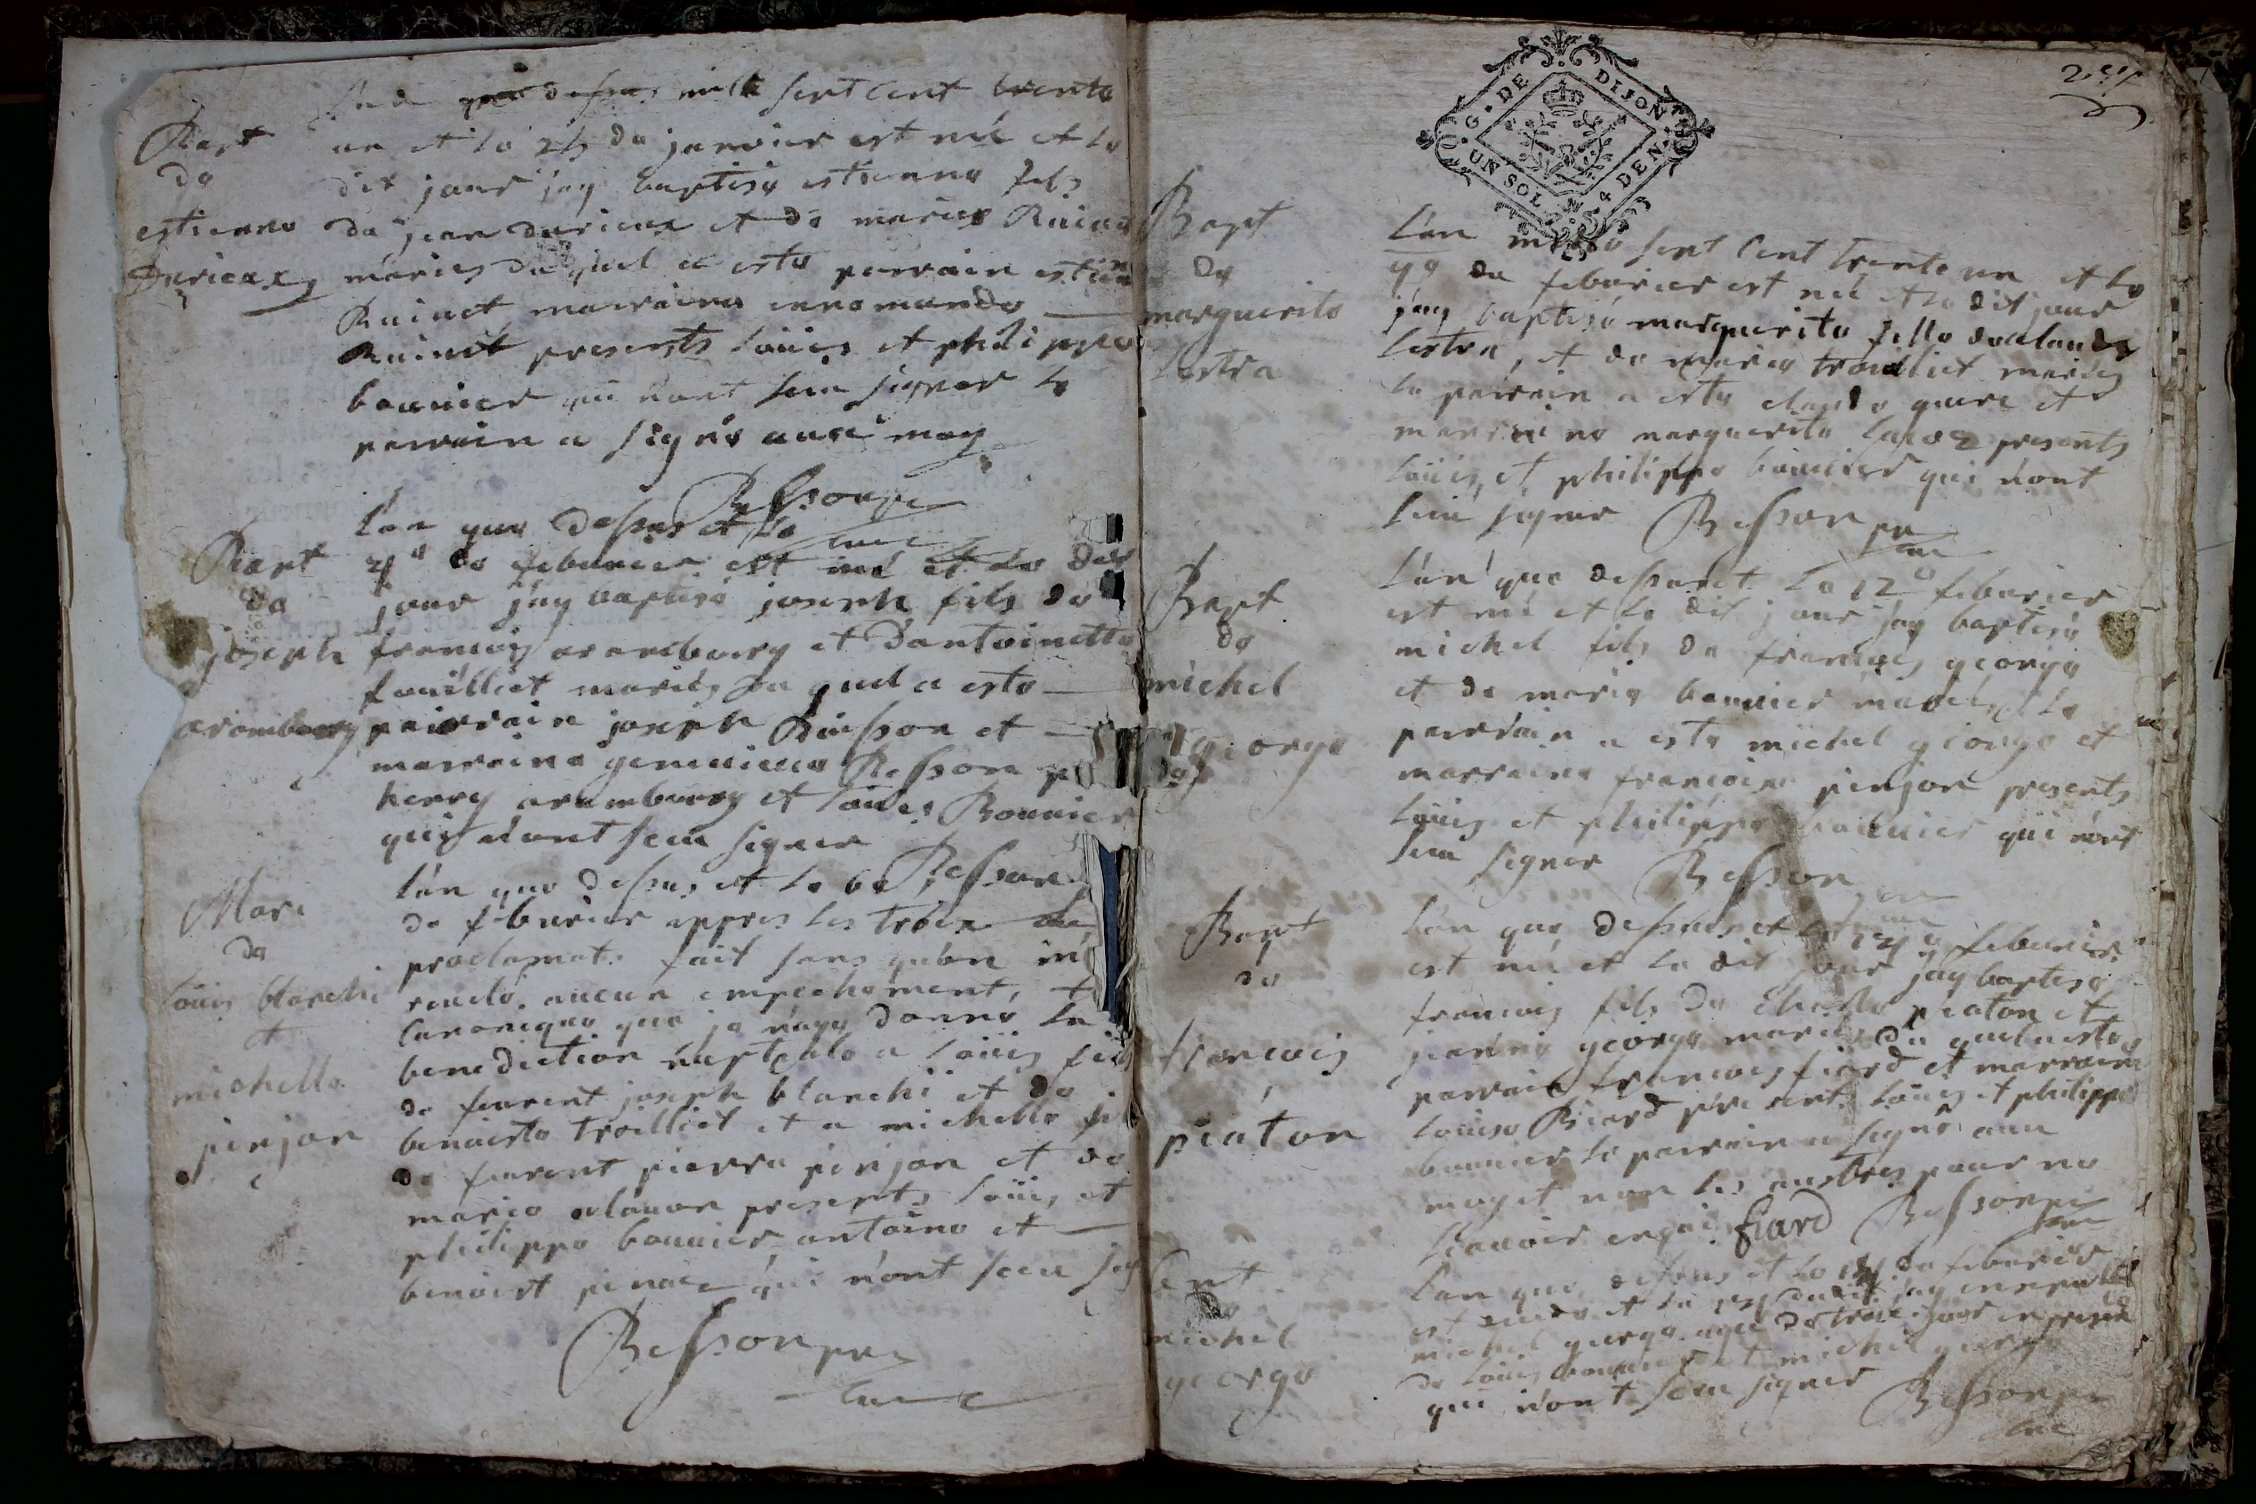 L'an que dessus mille sept cent trente
Bapt
de
estienne
Durieux
un et le 25 de janvier est né et le
dit jour jay baptisé estienne fils
de jean durieux et de marie Ruinet
mariés du quel a esté parrain estien
Ruinet marraine ennemonde
Ruinet presents loüis et philippe
bouvier qui n'ont sceu signer le
parrain a signé avec moy
Besson pre
curé
L'an que dessus et le
Bapt
de
joseph
arambourg
4e de feburier est né et le dit
jour j'ay baptisé joseph fils de
francois arambourg et d'antoinette
fouilliet mariés du quel a esté
pairrain joseph Buisson et
marraine genevieve Besson
henry arambourg et loüis Bouvier
qui n'ont sceu signer
Besson
Mari
de
loüis blanchi
et
michelle
pinjon
L'an que dessus et le 6e
de feburier appres les troix
proclamat. fait sans qu'on
aucun empechement,
canonique que je n'aye donné la
benediction nuptiale a loüis fils
de feurent joseph blanchi et de
benoiste troilliet et a michelle
de feurent pierre pinjon et de
marie presents loüis et
philippe bouvier antoine et
benoist pinac qui n'ont sceu
Besson pre
curé
G. DE DIJON
UN SOL 4 DEN.
Bapt
de
marguerite
Lestra
L'an mille sept cent trente un et le
9e de feburier est né et le dit jour
j'ay baptisé marguerite fille de claude
lestra, et de marie troilliet mariés
le parrain a esté claude et
marraine marguerite presents
loüis, et philippe bouvier qui n'ont
sceu signer Besson pre
curé
Bapt
de
michel
george
L'an que dessus et le 12e feburier
est né et le dit jour j'ay baptisé
michel fils de francois george
et de marie bouvier mariés le
parrain a esté michel george et
marraine francoise pinjon presents
loüis et philippe bouvier qui n'ont
sceu signer Besson
curé
Bapt
de
francois
piaton
L'an que dessus et le 14e feburier
est né et le dit jour j'ay baptisé
francois fils de piaton et
jeanne george mariés du quel a esté
parrain francois fiard et marraine
louise Biard presents loüis et philippe
bouvier le parrain a signé avec
moy et non les austres pour ne
scavoir enquis fiard Besson pre
curé
michel
george
L'an que dessus et le de feburier
michel george agé de troix jour en presen
de loüis bouvier et michel george
qui n'ont sceu signer Besson pre
curé